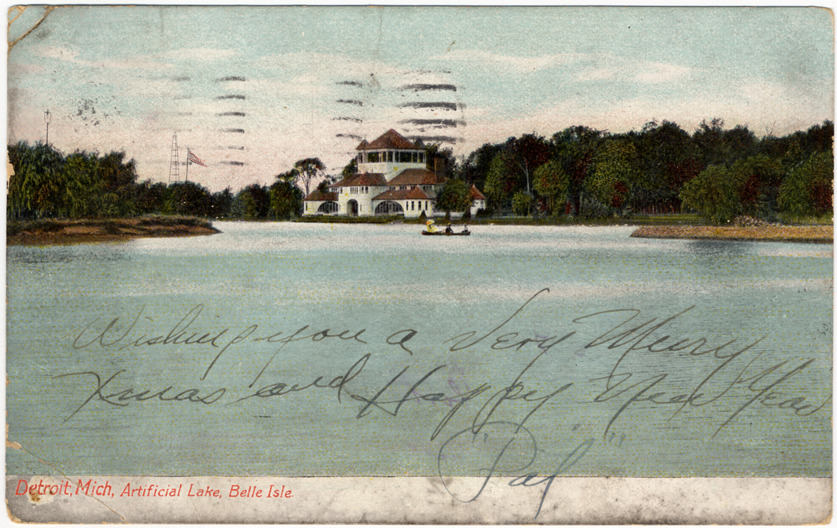 Wishing you a Very Merry
Xmas and Happy New Year
"Pal"
Detroit, Mich, Artificial Lake, Belle Isle.